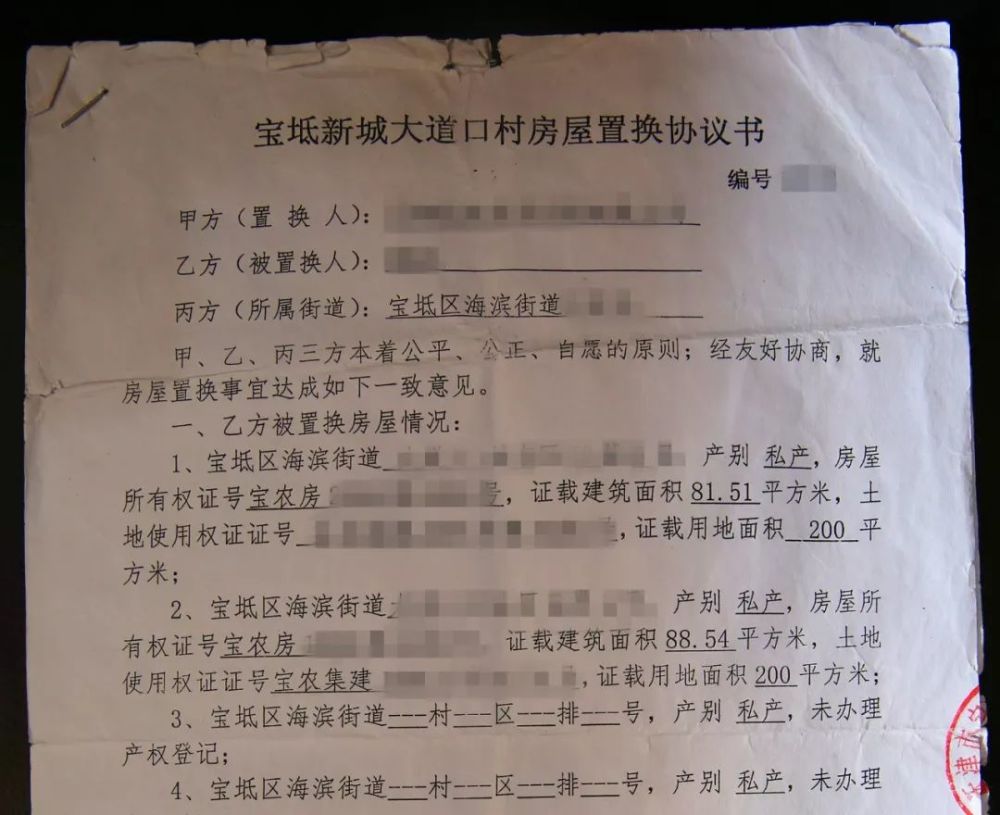 宝坻新城大道口村房屋置换协议书
编号
甲方（置 换 人）：
乙方（被置换人）：
丙方（所属街道）：宝坻区海滨街道
甲、乙、丙三方本着公平、公正、自愿的原则；经友好协商，就
房屋置换事宜达成如下一致意见。
一、乙方被置换房屋情况：
1、宝坻区海滨街道 产别 私产，房屋
所有权证号宝农房 号，证载建筑面积81.51平方米，土
地使用权证证号 ，证载用地面积 200 平
方米；
2、宝坻区海滨街道 产别 私产，房屋所
有权证号宝农房 证载建筑面积88.54平方米，土地
使用权证证号宝农集建 ，证载用地面积200平方米；
3、宝坻区海滨街道---村---区---排---号，产别 私产，未办理
产权登记；
4、宝坻区海滨街道---村---区---排---号，产别 私产，未办理